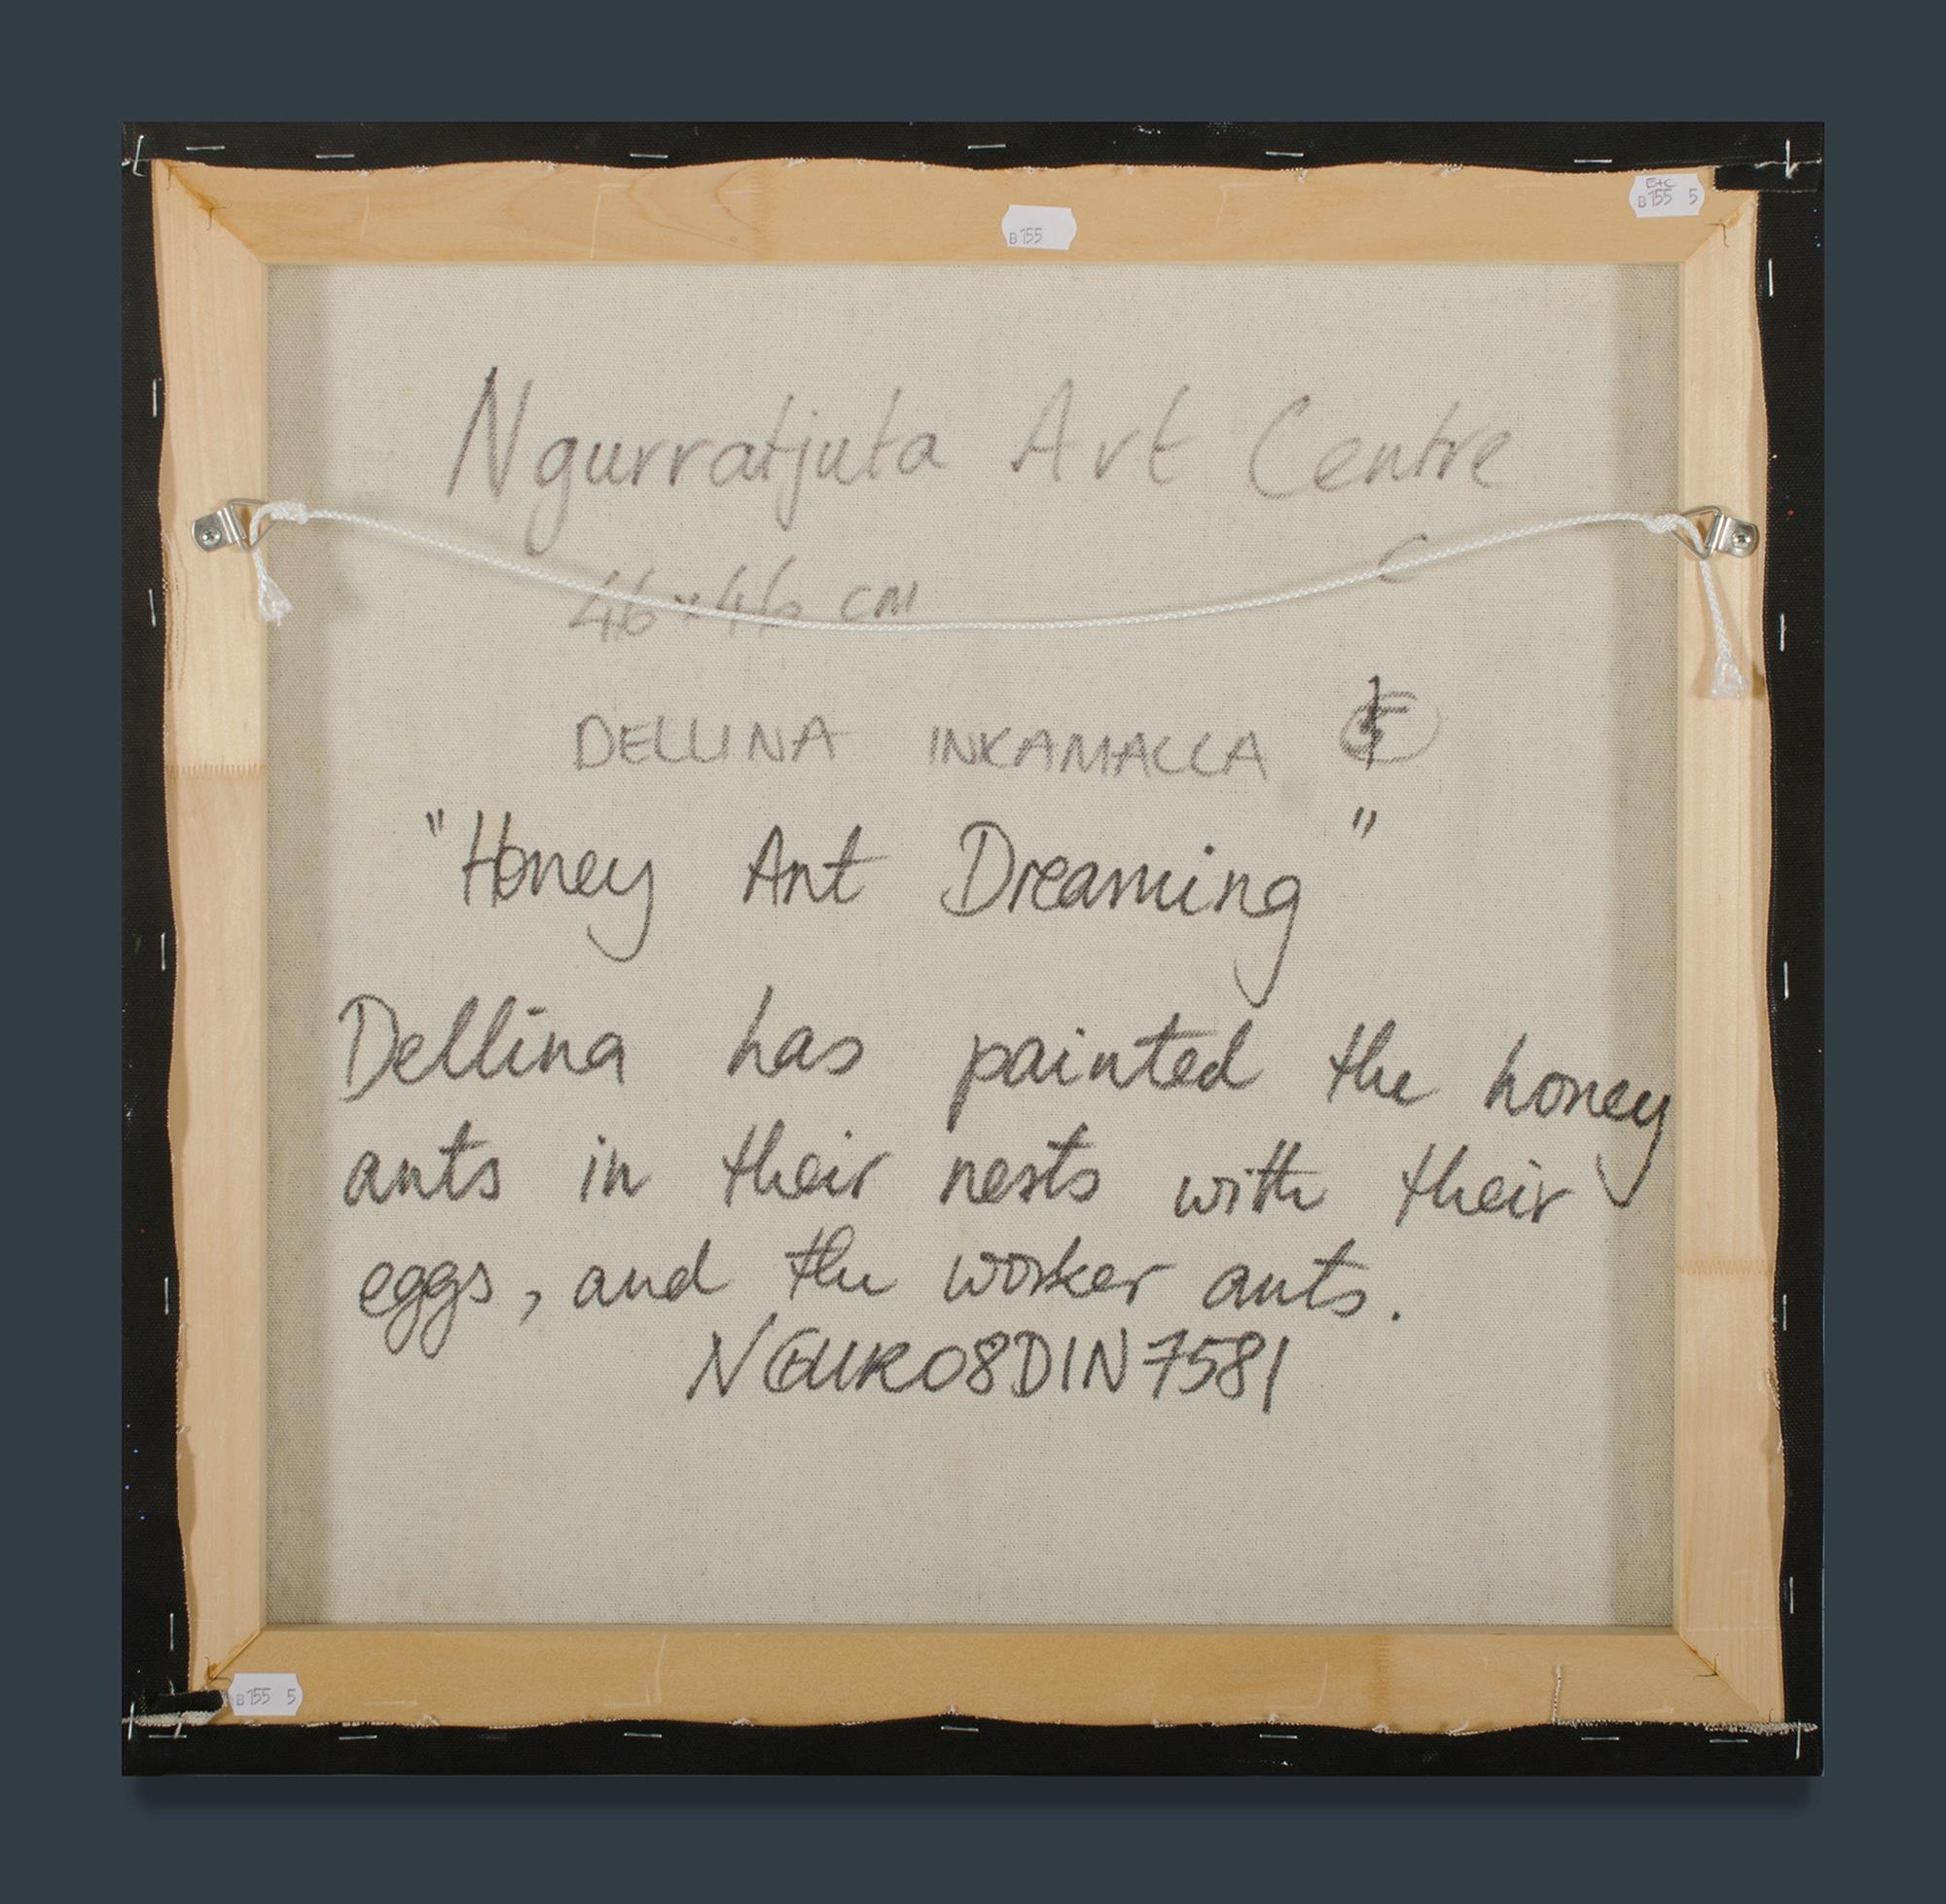 E+C
B 155 5
B 155
Ngurratjuta Art Centre
C
46x46 cm
DELLINA INKAMALLA
"Honey Ant Dreaming"
Dellina has painted the honey
ants in their nests with their
eggs, and the worker ants.
NGUR08DIN7581
B 155 5